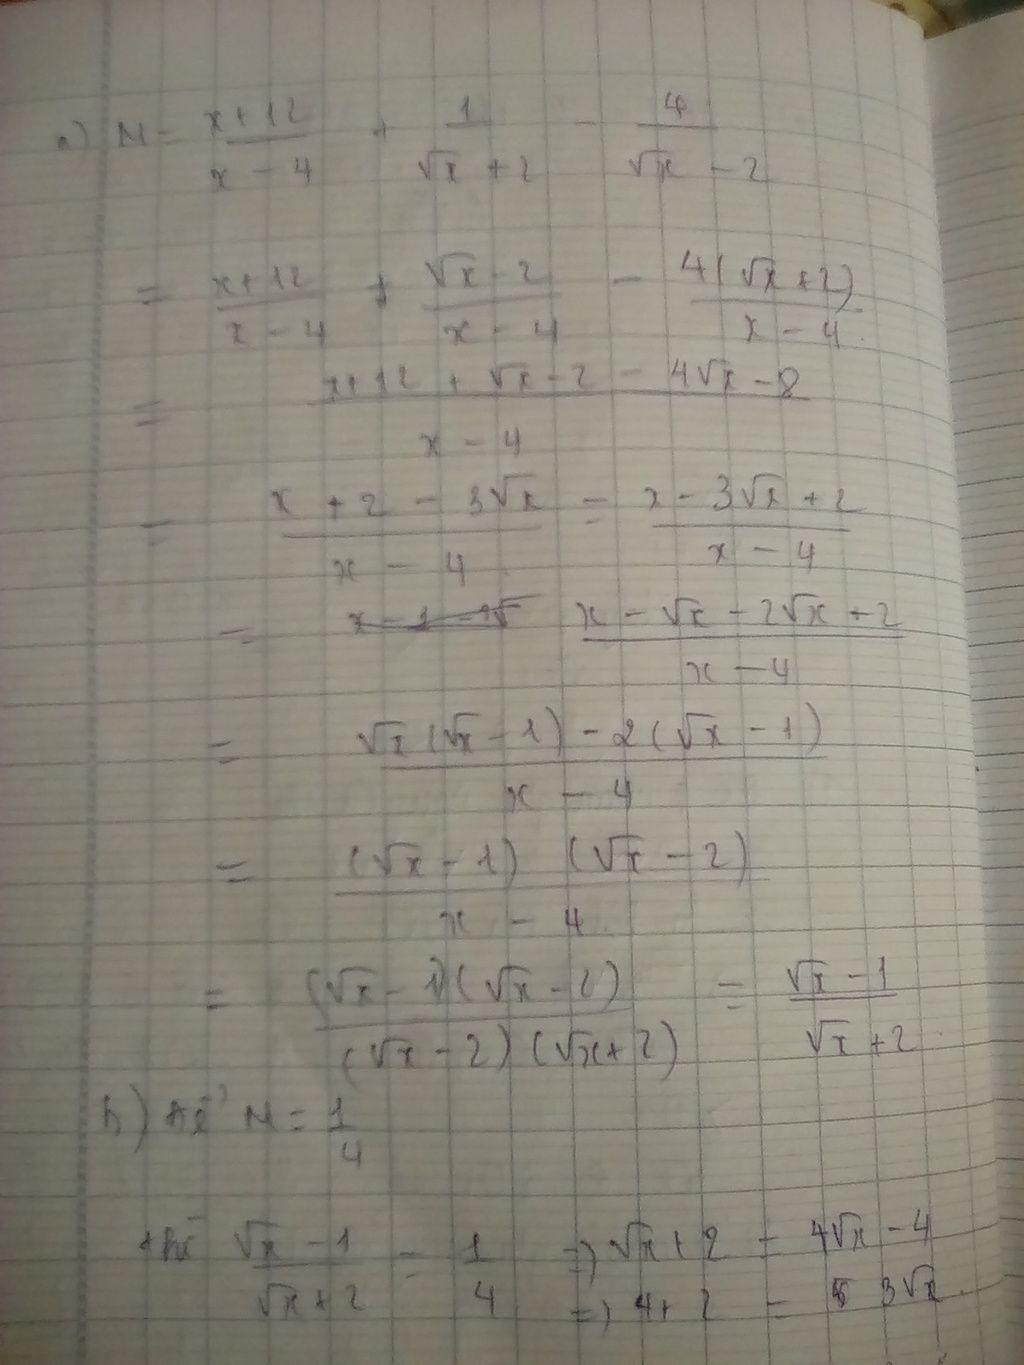 a) M = \frac{x+12}{x-4} + \frac{1}{\sqrt{x}+2} - \frac{4}{\sqrt{x}-2}
= \frac{x+12}{x-4} + \frac{\sqrt{x}-2}{x-4} - \frac{4(\sqrt{x}+2)}{x-4}
= \frac{x+12+\sqrt{x}-2-4\sqrt{x}-8}{x-4}
= \frac{x+2-3\sqrt{x}}{x-4} = \frac{x-3\sqrt{x}+2}{x-4}
= \frac{x-\sqrt{x}-2\sqrt{x}+2}{x-4}
= \frac{\sqrt{x}(\sqrt{x}-1)-2(\sqrt{x}-1)}{x-4}
= \frac{(\sqrt{x}-1)(\sqrt{x}-2)}{x-4}
= \frac{(\sqrt{x}-1)(\sqrt{x}-2)}{(\sqrt{x}-2)(\sqrt{x}+2)} = \frac{\sqrt{x}-1}{\sqrt{x}+2}
b) Để M = \frac{1}{4}
thì \frac{\sqrt{x}-1}{\sqrt{x}+2} = \frac{1}{4} => \sqrt{x}+2 = 4\sqrt{x}-4
=> 4+2 = 3\sqrt{x}